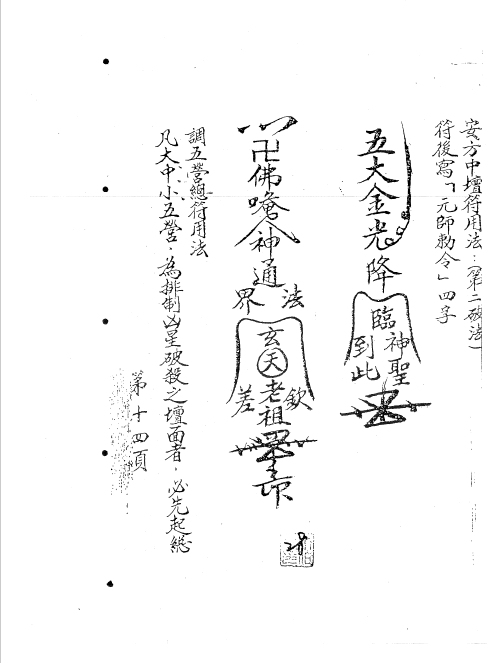 安方中壇符用法：（第二破法）
符後寫「元帥勅令」四字
五大金光降
臨神聖
到此
卍佛唵神通
法界
玄天老祖
欽差
調五營總符用法
凡大中、小五營，為排制凶星破殺之壇面者，必先起總
第十四頁
28